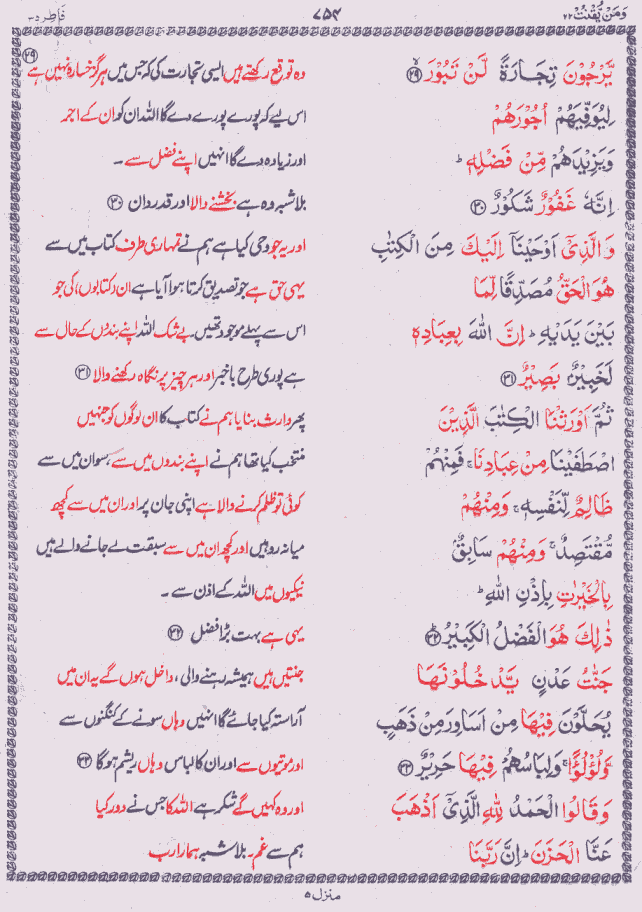 وَمَنْ يَّقْنُتْ ۲۲
۷۵۴
فَاطِر ۳۵
يَّرْجُوْنَ تِجَارَةً لَّنْ تَبُوْرَ ۲۹
وہ توقع رکھتے ہیں ایسی تجارت کی کہ جس میں ہرگز خسارہ نہیں ہے ۲۹
لِيُوَفِّيَهُمْ اُجُوْرَهُمْ
اس لیے کہ پورے پورے دے گا اللہ ان کو ان کے اجر
وَيَزِيْدَهُمْ مِّنْ فَضْلِهٖ ؕ
اور زیادہ دے گا انہیں اپنے فضل سے ۔
اِنَّهٗ غَفُوْرٌ شَكُوْرٌ ۳۰
بلاشبہ وہ ہے بخشنے والا اور قدردان ۳۰
وَالَّذِيْٓ اَوْحَيْنَآ اِلَيْكَ مِنَ الْكِتٰبِ
اور یہ جو وحی کیا ہے ہم نے تمہاری طرف کتاب میں سے
هُوَ الْحَقُّ مُصَدِّقًا لِّمَا
یہی حق ہے جو تصدیق کرتا ہوا آیا ہے ان (کتابوں) کی جو
بَيْنَ يَدَيْهِ ؕ اِنَّ اللّٰهَ بِعِبَادِهٖ
اس سے پہلے موجود تھیں۔ بے شک اللہ اپنے بندوں کے حال سے
لَخَبِيْرٌۢ بَصِيْرٌ ۳۱
ہے پوری طرح باخبر اور ہر چیز پر نگاہ رکھنے والا ۳۱
ثُمَّ اَوْرَثْنَا الْكِتٰبَ الَّذِيْنَ
پھر وارث بنایا ہم نے کتاب کا ان لوگوں کو جنہیں
اصْطَفَيْنَا مِنْ عِبَادِنَا ۚ فَمِنْهُمْ
منتخب کیا تھا ہم نے اپنے بندوں میں سے، سو ان میں سے
ظَالِمٌ لِّنَفْسِهٖ ۚ وَمِنْهُمْ
کوئی تو ظلم کرنے والا ہے اپنی جان پر اور ان میں سے کچھ
مُّقْتَصِدٌ ۚ وَمِنْهُمْ سَابِقٌۢ
میانہ رو ہیں اور کچھ ان میں سے سبقت لے جانے والے ہیں
بِالْخَيْرٰتِ بِاِذْنِ اللّٰهِ ؕ
نیکیوں میں اللہ کے اذن سے ۔
ذٰلِكَ هُوَ الْفَضْلُ الْكَبِيْرُ ۳۲
یہی ہے بہت بڑا فضل ۳۲
جَنّٰتُ عَدْنٍ يَّدْخُلُوْنَهَا
جنتیں ہیں ہمیشہ رہنے والی، داخل ہوں گے یہ ان میں
يُحَلَّوْنَ فِيْهَا مِنْ اَسَاوِرَ مِنْ ذَهَبٍ
آراستہ کیا جائے گا انہیں وہاں سونے کے کنگنوں سے
وَّلُؤْلُؤًا ۚ وَلِبَاسُهُمْ فِيْهَا حَرِيْرٌ ۳۳
اور موتیوں سے اور ان کا لباس وہاں ریشم ہوگا ۳۳
وَقَالُوا الْحَمْدُ لِلّٰهِ الَّذِيْٓ اَذْهَبَ
اور وہ کہیں گے شکر ہے اللہ کا جس نے دور کیا
عَنَّا الْحَزَنَ ؕ اِنَّ رَبَّنَا
ہم سے غم۔ بلاشبہ ہمارا رب
منزل ۵